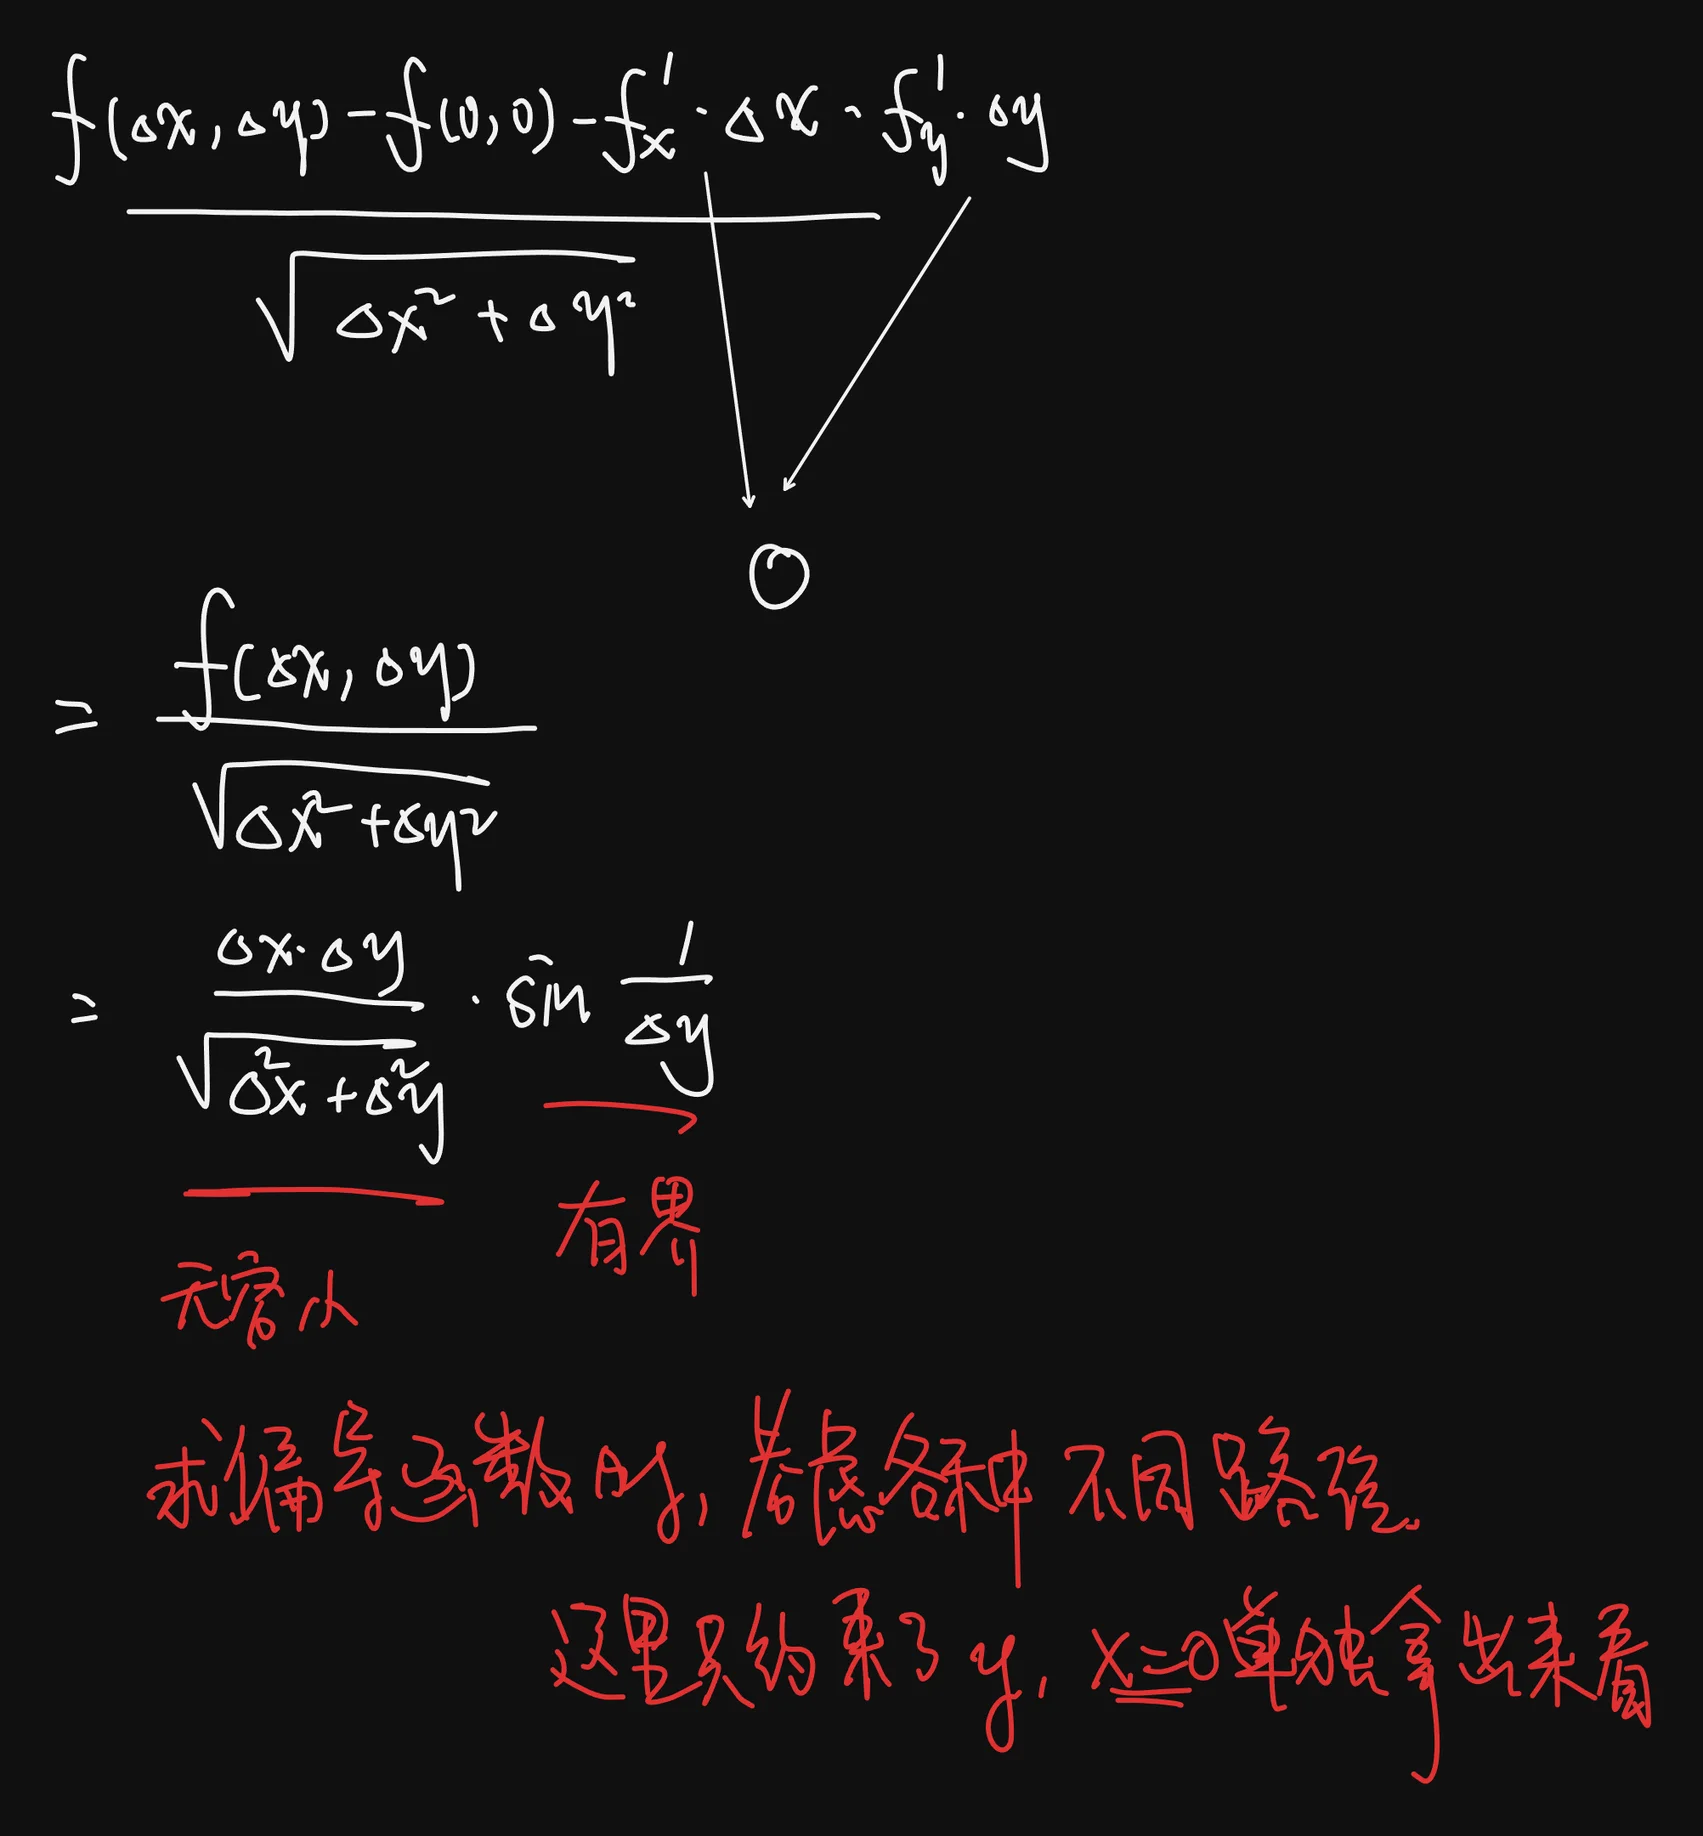 f(Δx, Δy) - f(0,0) - f'x · Δx - f'y · Δy
√(Δx² + Δy²)
0
= f(Δx, Δy)
√(Δx² + Δy²)
= Δx·Δy · sin 1/Δy
√(Δ²x + Δ²y)
有界
无穷小
求偏导函数时, 考虑各种不同路径.
这里只约束了 y, x=0单独拿出来看